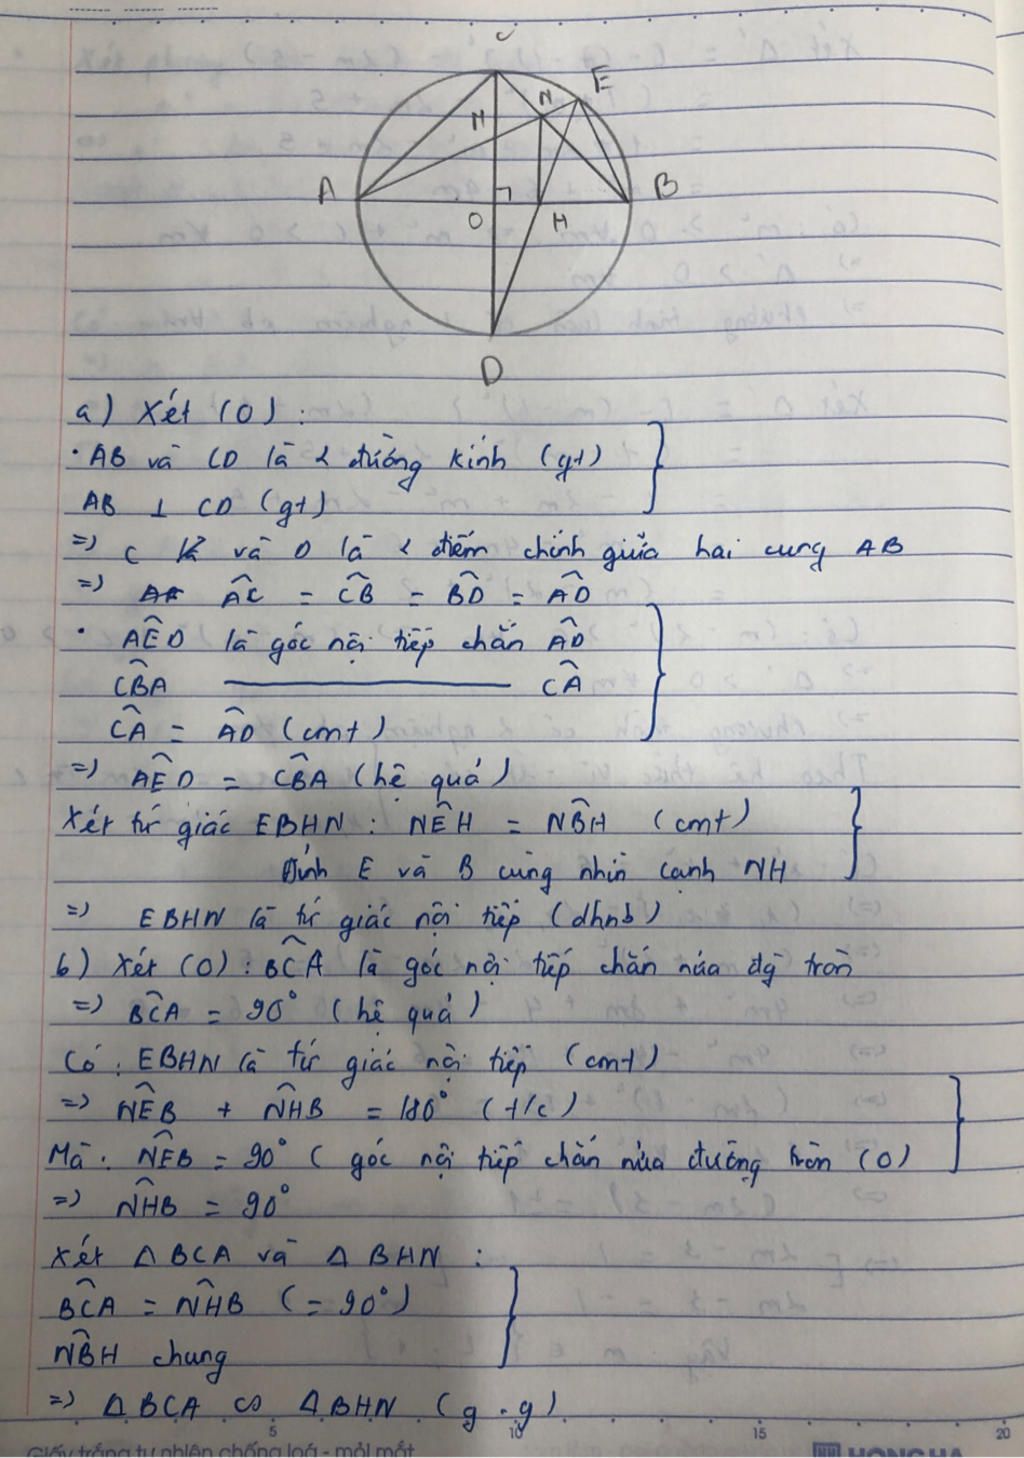 C
E
M
N
A
B
O
H
D
a) Xét (O) :
· AB và CD là 2 đường kính (gt)
AB ⊥ CD (gt)
=> C và D là 2 điểm chính giữa hai cung AB
=> AC = CB = BD = AD
· AED là góc nội tiếp chắn AD
CBA ——— CA
CA = AD (cmt)
=> AED = CBA (hệ quả)
Xét tứ giác EBHN : NEH = NBH (cmt)
Đỉnh E và B cùng nhìn cạnh NH
=> EBHN là tứ giác nội tiếp (dhnb)
b) Xét (O) : BCA là góc nội tiếp chắn nửa đg tròn
=> BCA = 90° (hệ quả)
Có : EBHN là tứ giác nội tiếp (cmt)
=> NEB + NHB = 180° (t/c)
Mà : NEB = 90° ( góc nội tiếp chắn nửa đường tròn (O)
=> NHB = 90°
Xét Δ BCA và Δ BHN :
BCA = NHB (= 90°)
NBH chung
=> Δ BCA ∽ Δ BHN (g.g)
5 10 15 20
Giấy trắng tự nhiên chống loá - mỏi mắt
HONG HA